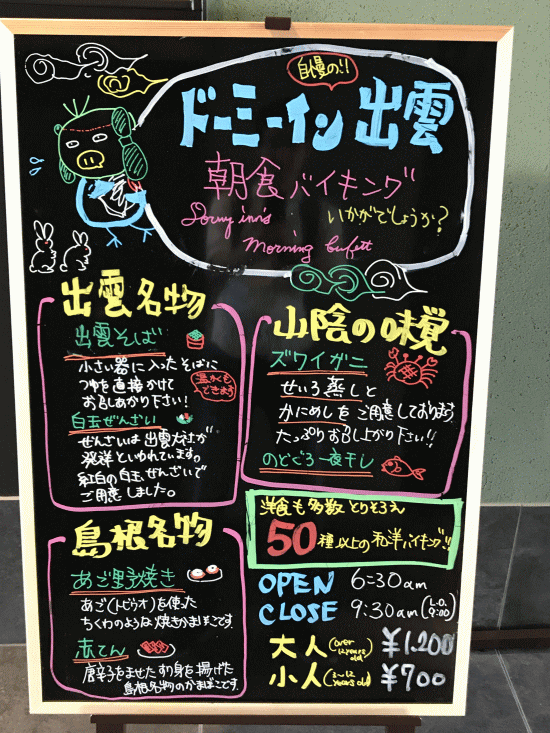 自慢の!!
ドーミーイン 出雲
朝食バイキング
いかがでしょうか?
Dormy inn's
Morning bufett
出雲名物
出雲そば
小さい器に入ったそばに
つゆを直接かけて
お召しあがり下さい!
温かくも
できます
白玉ぜんざい
ぜんざいは出雲大社が
発祥といわれています。
紅白の白玉ぜんざいで
ご用意しました。
島根名物
あご野焼き
あご(トビウオ)を使った
ちくわのような焼きかまぼこです。
赤てん
唐辛子をまぜたすり身を揚げた
島根名物のかまぼこです。
山陰の味覚
ズワイガニ
せいろ蒸しと
かにめしをご用意しております
たっぷりお召し上がり下さい!!
のどぐろ一夜干し
洋食も多数とりそろえ
50種以上の和洋バイキング!!
OPEN 6:30am
CLOSE 9:30am (L.O. 9:00)
大人 (over 12years old) ¥1,200
小人 (3~12 years old) ¥700